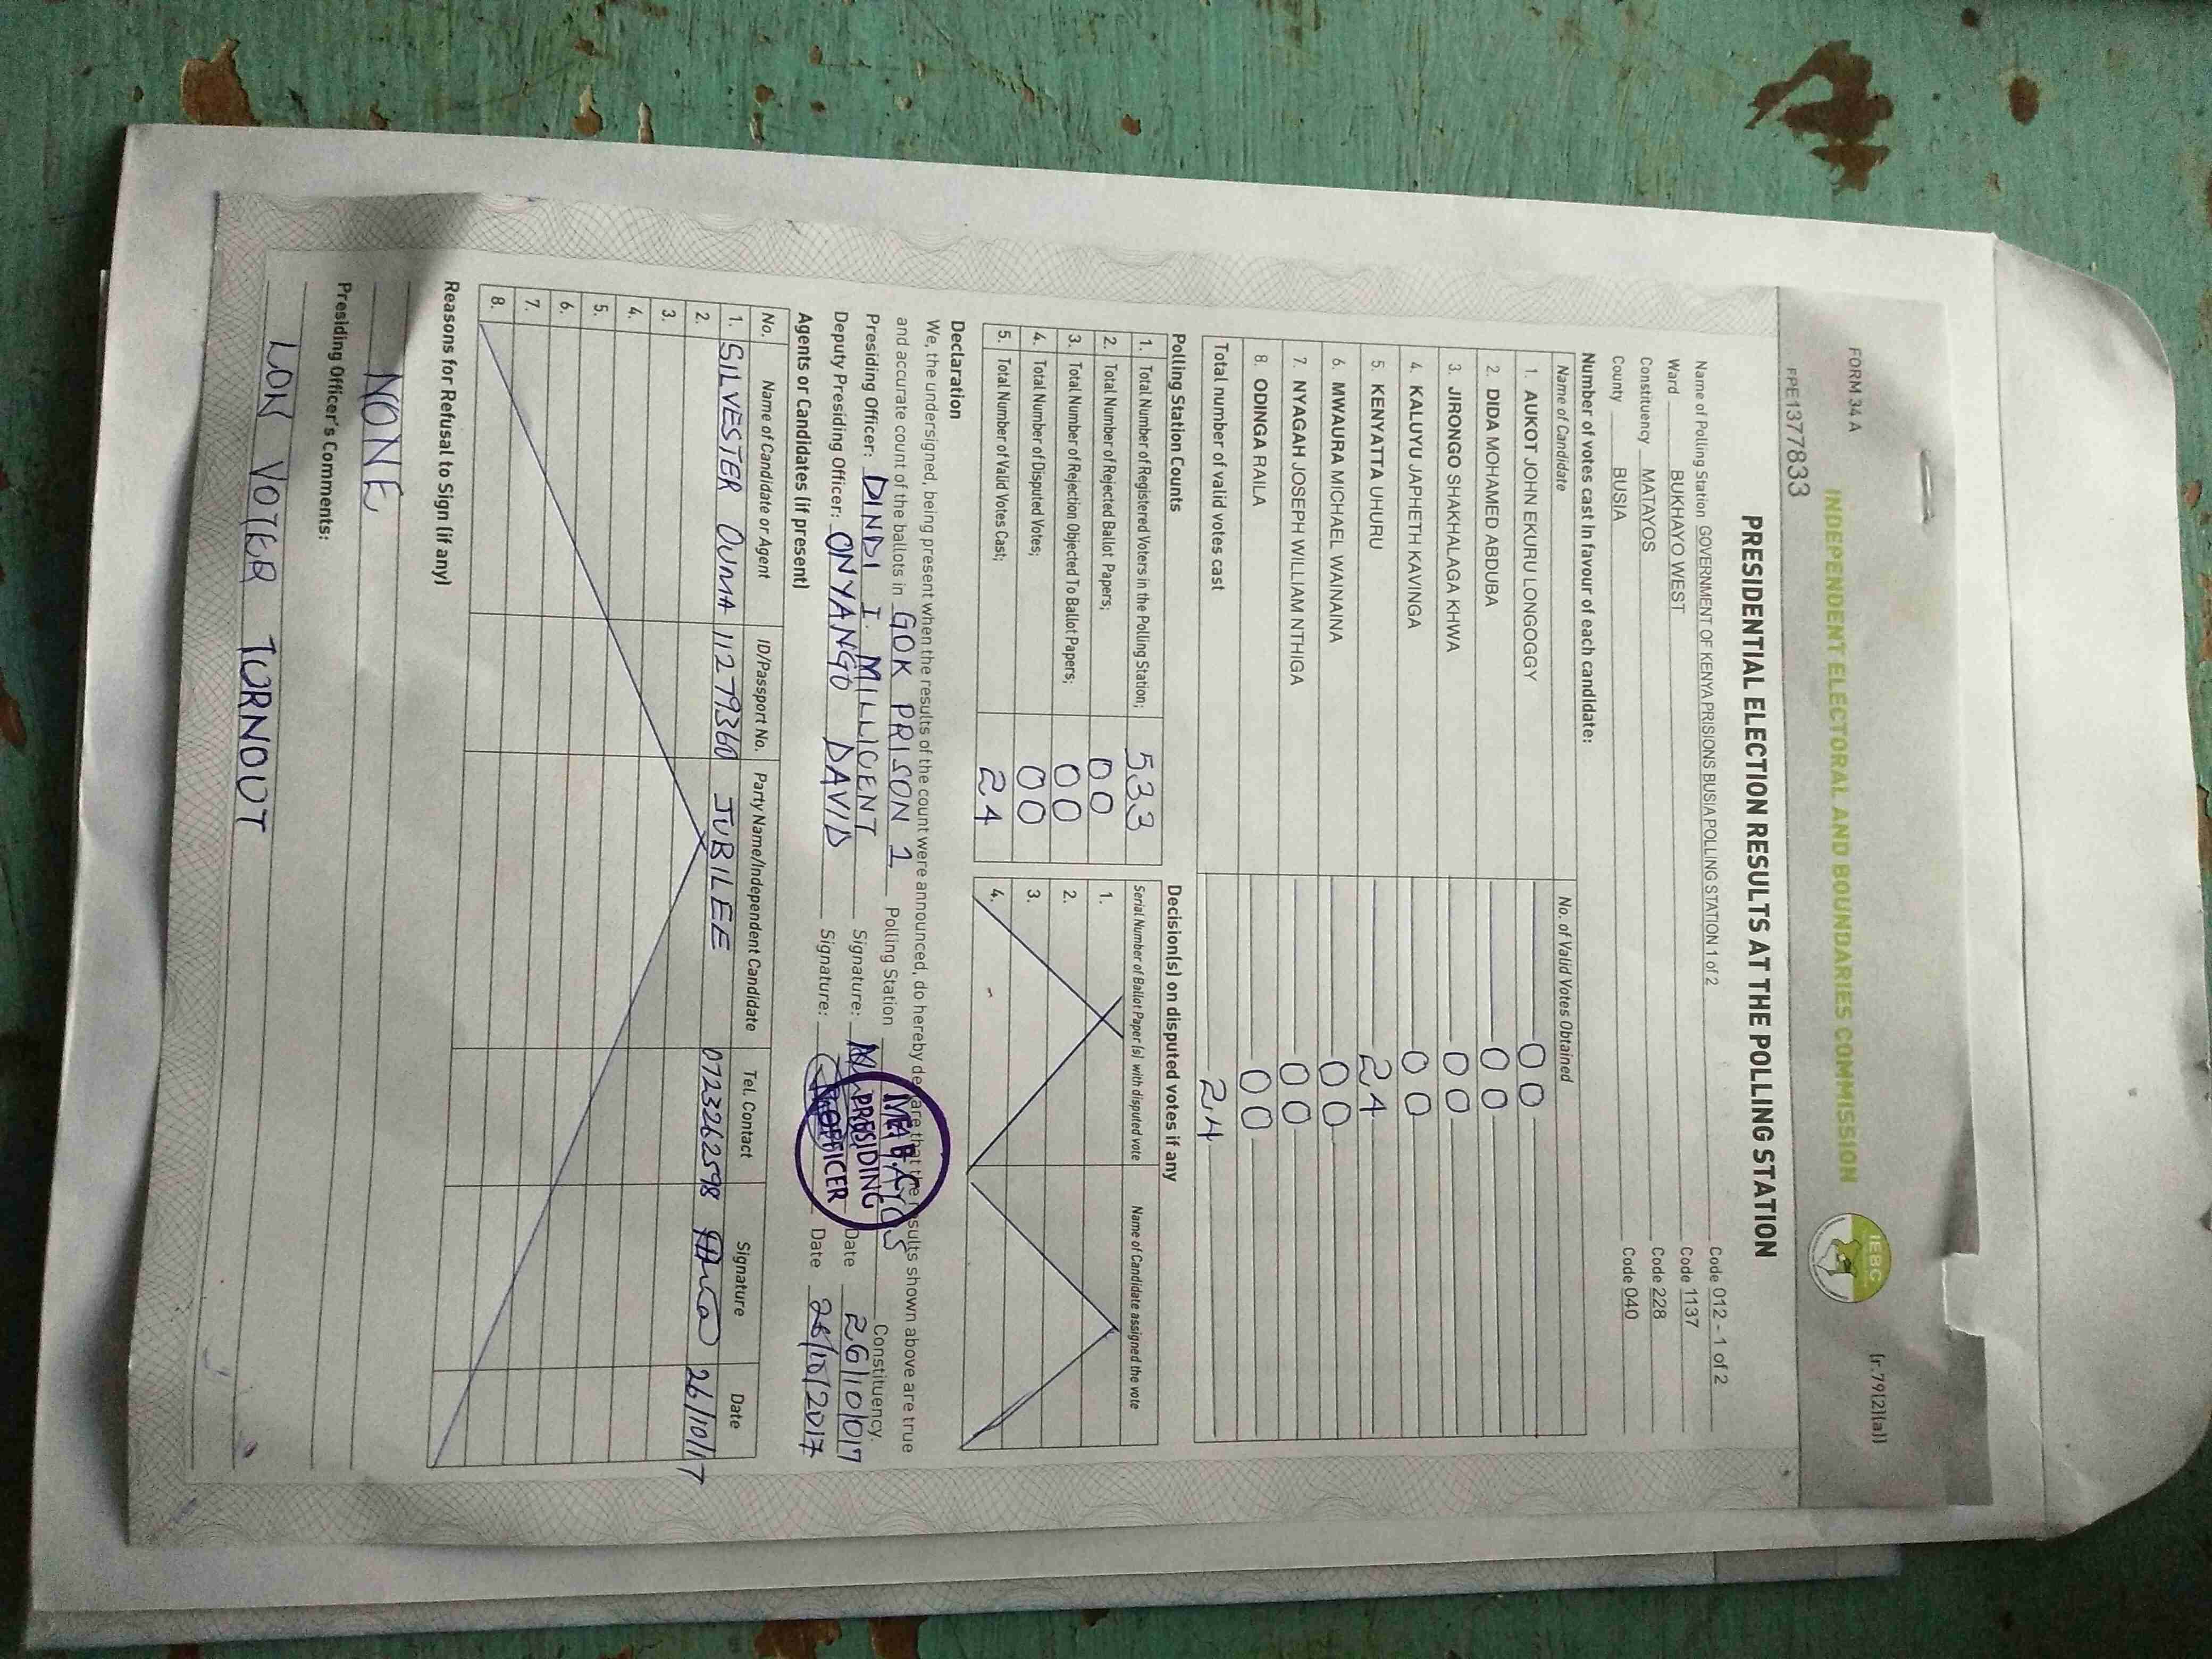 FORM 34 A
(r.79(2)(a))
INDEPENDENT ELECTORAL AND BOUNDARIES COMMISSION
IEBC
PPE1377833
PRESIDENTIAL ELECTION RESULTS AT THE POLLING STATION
Name of Polling Station GOVERNMENT OF KENYA PRISIONS BUSIA POLLING STATION 1 of 2 Code 012 - 1 of 2
Ward BUKHAYO WEST Code 1137
Constituency MATAYOS Code 228
County BUSIA Code 040
Number of votes cast in favour of each candidate:
Name of Candidate No. of Valid Votes Obtained
1. AUKOT JOHN EKURU LONGOGGY 00
2. DIDA MOHAMED ABDUBA 00
3. JIRONGO SHAKHALAGA KHWA 00
4. KALUYU JAPHETH KAVINGA 00
5. KENYATTA UHURU 24
6. MWAURA MICHAEL WAINAINA 00
7. NYAGAH JOSEPH WILLIAM NTHIGA 00
8. ODINGA RAILA 00
Total number of valid votes cast 24
Polling Station Counts Decision(s) on disputed votes if any
1. Total Number of Registered Voters in the Polling Station; 533
2. Total Number of Rejected Ballot Papers; 00
3. Total Number of Rejection Objected To Ballot Papers; 00
4. Total Number of Disputed Votes; 00
5. Total Number of Valid Votes Cast; 24
Serial Number of Ballot Paper (s) with disputed vote Name of Candidate assigned the vote
1.
2.
3.
4.
Declaration
We, the undersigned, being present when the results of the count were announced, do hereby declare that the results shown above are true
and accurate count of the ballots in GOK PRISON 1 Polling Station MATAYOS Constituency.
Presiding Officer: DINDI I. MILLICENT Signature: Date 26/10/017
Deputy Presiding Officer: ONYANGO DAVID Signature: Date 26/10/2017
PRESIDING
OFFICER
Agents or Candidates (if present)
No. Name of Candidate or Agent ID/Passport No. Party Name/Independent Candidate Tel. Contact Signature Date
1. SILVESTER OUMA 11279360 JUBILEE 0723262598 26/10/17
2.
3.
4.
5.
6.
7.
8.
Reasons for Refusal to Sign (if any)
NONE
Presiding Officer's Comments:
LOW VOTER TURNOUT